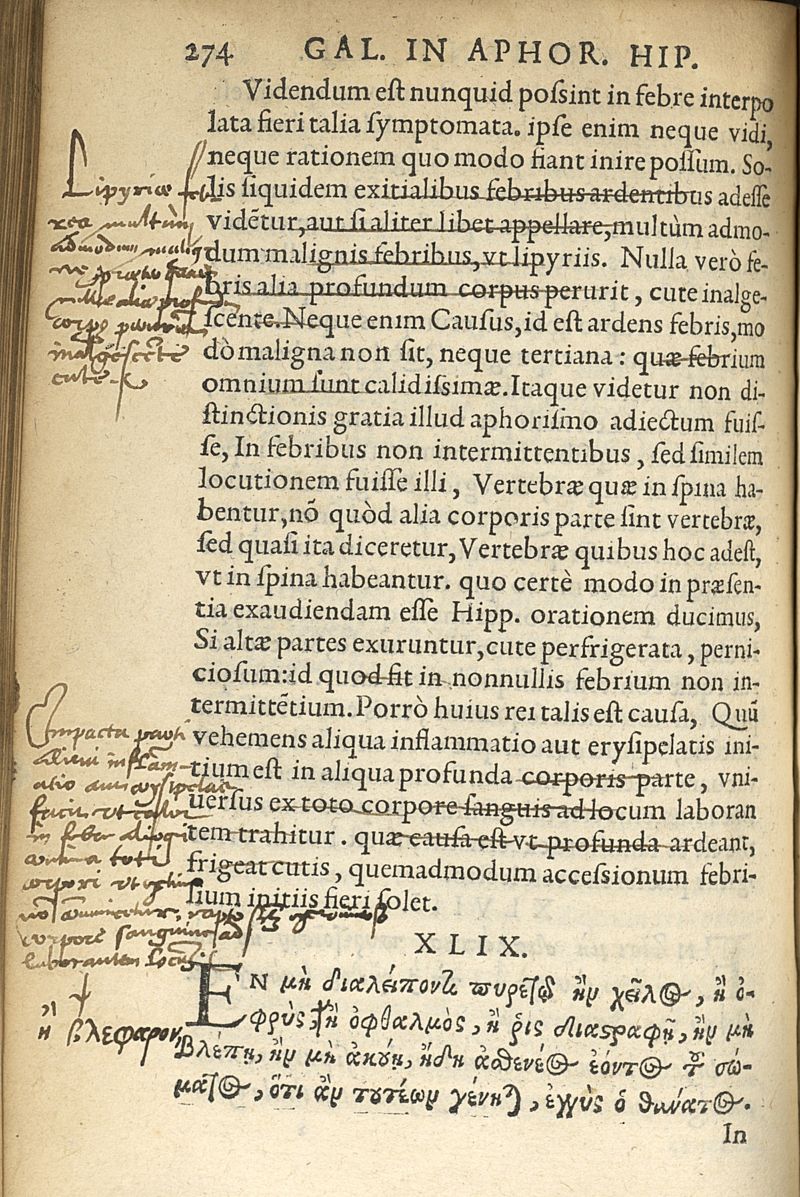 274 GAL. IN APHOR. HIP.
Videndum est nunquid possint in febre interpo
lata fieri talia symptomata. ipse enim neque vidi,
neque rationem quo modo fiant inire possum. So-
lis siquidem exitialibus febribus ardentibus adesse
vidētur, aut si aliter libet appellare, multùm admo-
dum malignis febribus, vt lipyriis. Nulla verò fe-
bris alia profundum corpus perurit, cute inalge-
scente. Neque enim Causus, id est ardens febris, mo
dò maligna non sit, neque tertiana: quæ febrium
omnium sunt calidissimæ. Itaque videtur non di-
stinctionis gratia illud aphorismo adiectum fuis-
se, In febribus non intermittentibus, sed similem
locutionem fuisse illi, Vertebræ quæ in spina ha-
bentur, nō quòd alia corporis parte sint vertebræ,
sed quasi ita diceretur, Vertebræ quibus hoc adest,
vt in spina habeantur. quo certè modo in præsen-
tia exaudiendam esse Hipp. orationem ducimus,
Si altæ partes exuruntur, cute perfrigerata, perni-
ciosum: id quod fit in nonnullis febrium non in-
termittētium. Porrò huius rei talis est causa, Quū
vehemens aliqua inflammatio aut erysipelatis ini-
tium est in aliqua profunda corporis parte, vni-
uersus ex toto corpore sanguis ad locum laboran
tem trahitur. quæ causa est vt profunda ardeant,
frigeat cutis, quemadmodum accessionum febri-
sium initiis fieri solet.
XLIX.
ΕΝ μὴ διαλείποντι πυρετῷ ἢν χεῖλος, ἢ ὀ-
φρὺς, ἢ ὀφθαλμὸς, ἢ ῥὶς διαστραφῇ, ἢν μὴ
βλέπῃ, ἢν μὴ ἀκούῃ, ἤδη ἀσθενέος ἐόντος τοῦ σώ-
ματος, ὅτι ἂν τουτέων γένηται, ἐγγὺς ὁ θάνατος.
In
Lipyriæ
multùm
inalgescēte
cute
corpore sanguine ad
laborantem locum
ἢ βλεφαρον